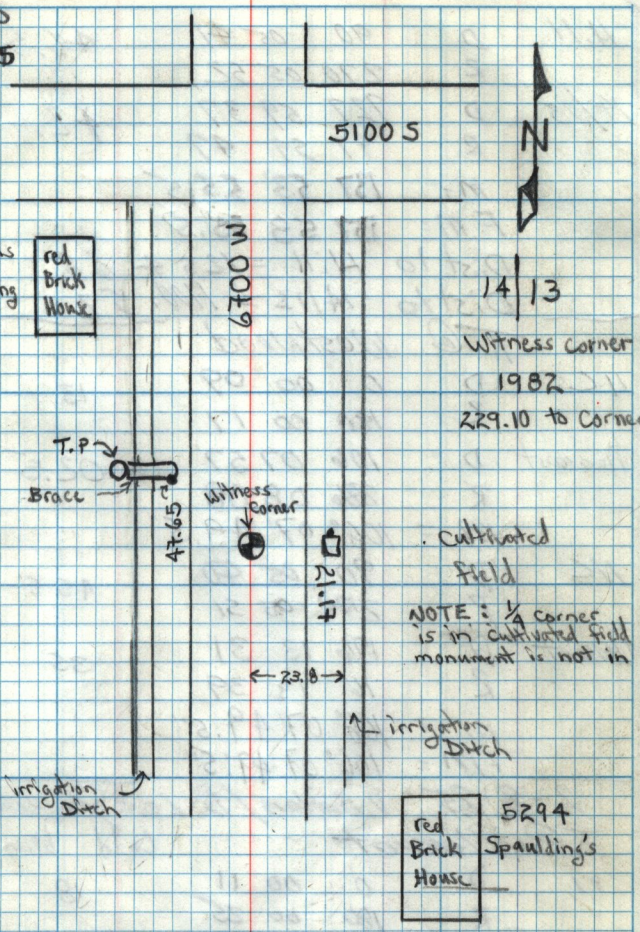 5100 S
N
6700 W
red
Brick
House
14 | 13
Witness corner
1982
229.10 to Corner
T.P
Brace
47.65
Witness
Corner
21.17
Cultivated
field
NOTE : 1/4 corner
is in cultivated field
monument is not in
23.8
irrigation
Ditch
irrigation
Ditch
red
Brick
House
5294
Spaulding's